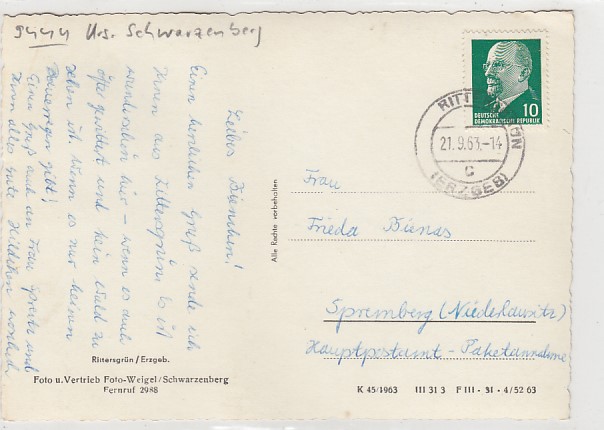 9444 Krs. Schwarzenberg
Liebes Bienchen!
Einen herzlichen Gruß sende ich
Ihnen aus Rittersgrün. Es ist
wunderschön hier – wenn es auch
öfter und kein Wald zu
sehen ist, wenn es nur keinen
gibt!
Einen Gruß auch an Frau und
Ihnen alles Gute
Rittersgrün / Erzgeb.
Foto u. Vertrieb Foto-Weigel / Schwarzenberg
Fernruf 2988
Alle Rechte vorbehalten
10
DEUTSCHE
DEMOKRATISCHE REPUBLIK
21.9.63.-14
c
(ERZGEB)
Frau
Frieda Bienas
Spremberg (Niederlausitz)
Hauptpostamt - Paketannahme
K 45/1963 III 31 3 F III - 31 - 4/52 63